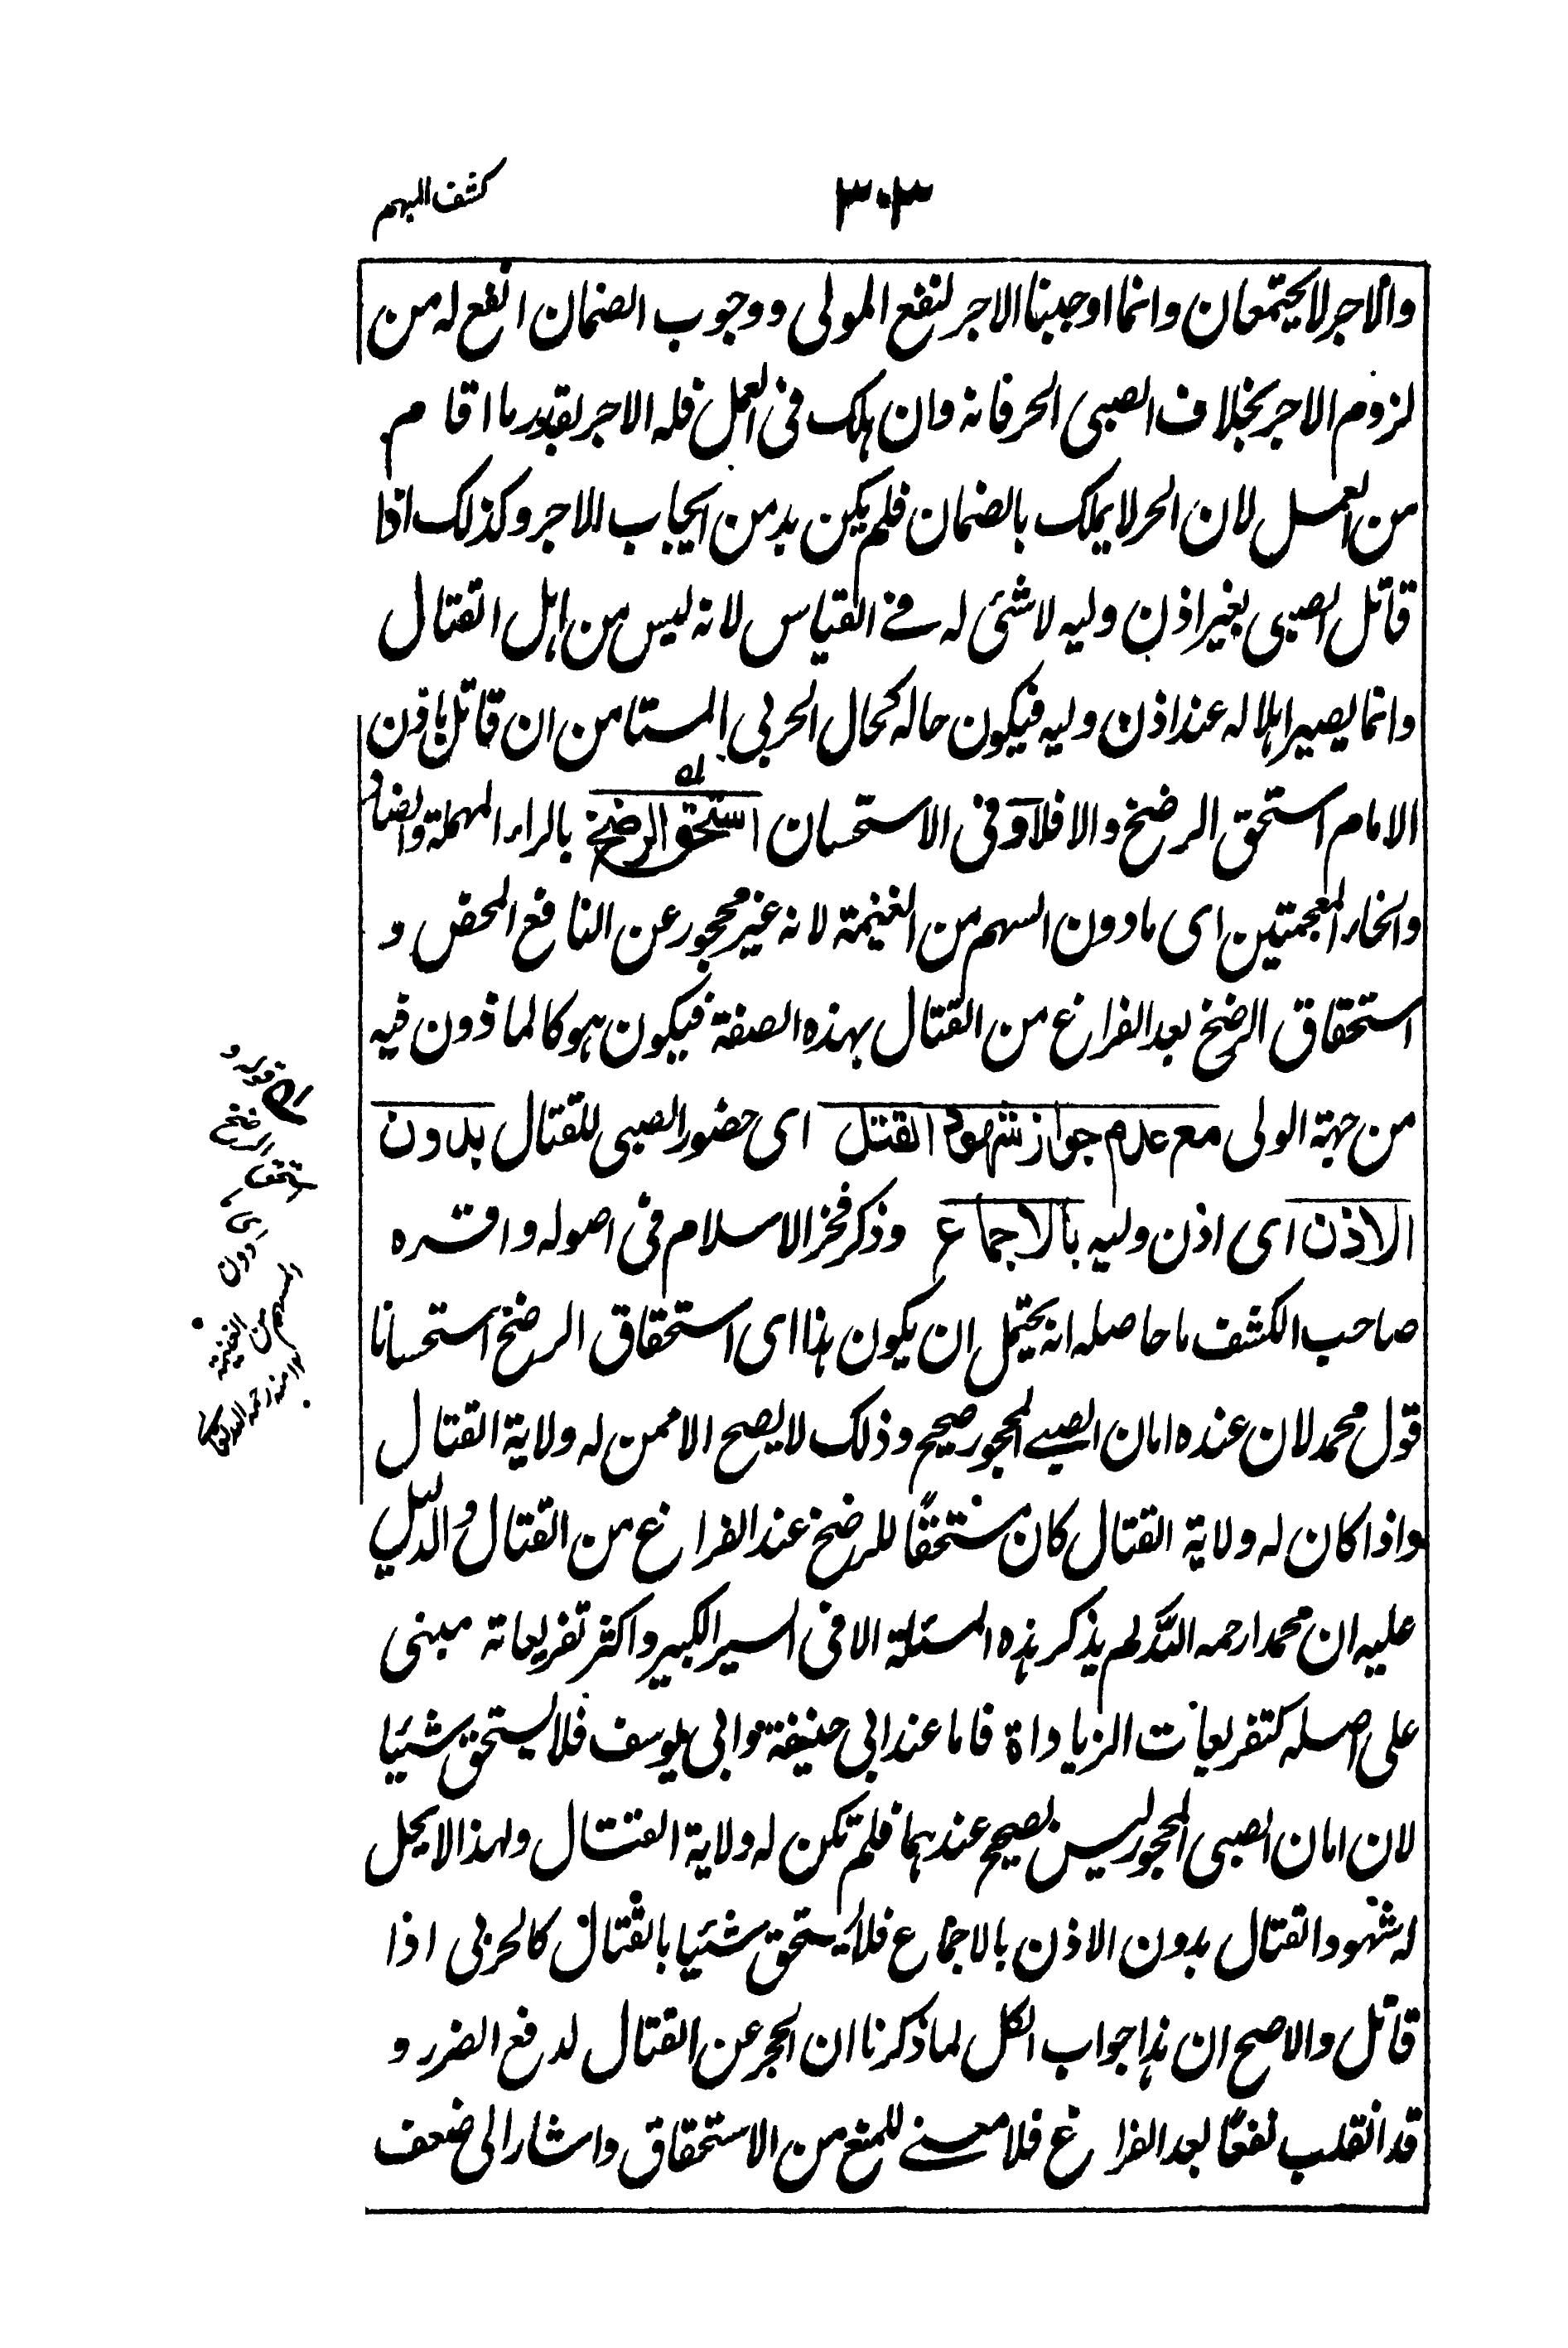 كشف المبهم
٣٠٣
والاجر لا يجتمعان وانما اوجبنا الاجر لنفع المولى ووجوب الضمان انفع له من
لزوم الاجر بخلاف الصبى الحر فانه وان هلك فى العمل فله الاجر بقدر ما اقام
من العمل لان الحر لا يملك بالضمان فلم يكن بد من ايجاب الاجر وكذلك اذا
قاتل الصبى بغير اذن وليه لا شئ له فے القياس لانه ليس من اهل القتال
وانما يصير اهلا له عند اذن وليه فيكون حاله كحال الحربى المستامن ان قاتل باذن
الامام استحق الرضخ والا فلا وفى الاستحسان استحق الرضخ بالراء المهملة والضاد
والخاء المعجمتين اى ما دون السهم من الغنيمة لانه غير محجور عن النافع المحض و
استحقاق الرضخ بعد الفراغ من القتال بهذه الصفة فيكون هو كالماذون فيه
من جهة الولى مع عدم جواز شهود القتل اى حضور الصبى للقتال بدون
الاذن اى اذن وليه بالاجماع وذكر فخر الاسلام فى اصوله واقره
صاحب الكشف ما حاصله انه يحتمل ان يكون هذا اى استحقاق الرضخ استحسانا
قول محمد لان عنده امان الصبے المحجور صحيح وذلك لا يصح الا ممن له ولاية القتال
واذا كان له ولاية القتال كان مستحقًا للرضخ عند الفراغ من القتال والدليل
عليه ان محمدا رحمه الله لم يذكر هذه المسئلة الا فى السير الكبير واكثر تفريعاته مبنى
على اصله كتفريعات الزياداة فاما عند ابى حنيفة وابى يوسف فلا يستحق شئيا
لان امان الصبى المحجور ليس بصيح عندهما فلم تكن له ولاية القتال ولهذا لا يحل
له شهود القتال بدون الاذن بالاجماع فلا يستحق شئيا بالقتال كالحربى اذا
قاتل والاصح ان هذا جواب الكل لما ذكرنا ان الحجر عن القتال لدفع الضرر و
قد انقلب نفعًا بعد الفراغ فلا معنے للمنع من الاستحقاق واشار الى ضعف
قوله و
الرضخ
استحق
اى
دون
السهم من الغنيمة
١٢ منه رحمه الله تعالى